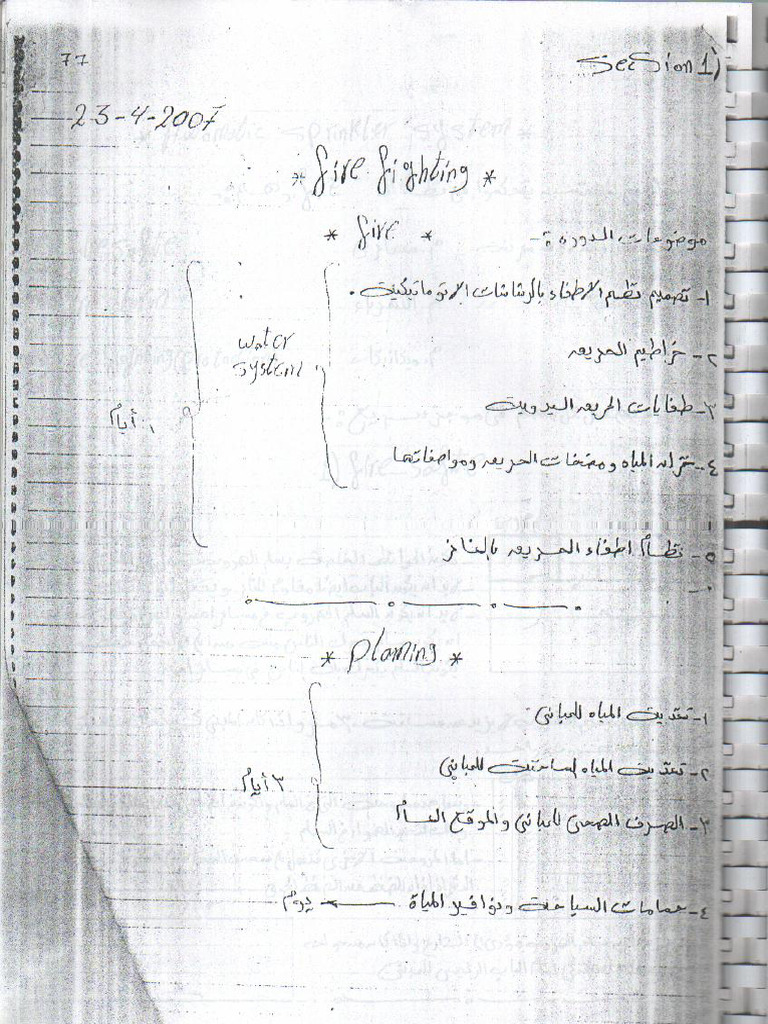 77
Section 1)
23-4-2007
* fire fighting *
* fire *
موضوعات الدورة :-
١- تصميم نظم الإطفاء بالرشاشات الاتوماتيكية .
٢- خراطيم الحريق
٣- طفايات الحريق اليدوية
٤- خزان المياه ومضخات الحريق ومواصفاتها
water system
٥- نظام اطفاء الحريق بالغاز
أيام
* Planing *
١- تغذية المياه للمباني
٢- تغذية المياه الساخنة للمباني
٣- الصرف الصحى للمباني والموقع العام
٣ أيام
٤- حمامات السباحة ونوافير المياة ← يوم